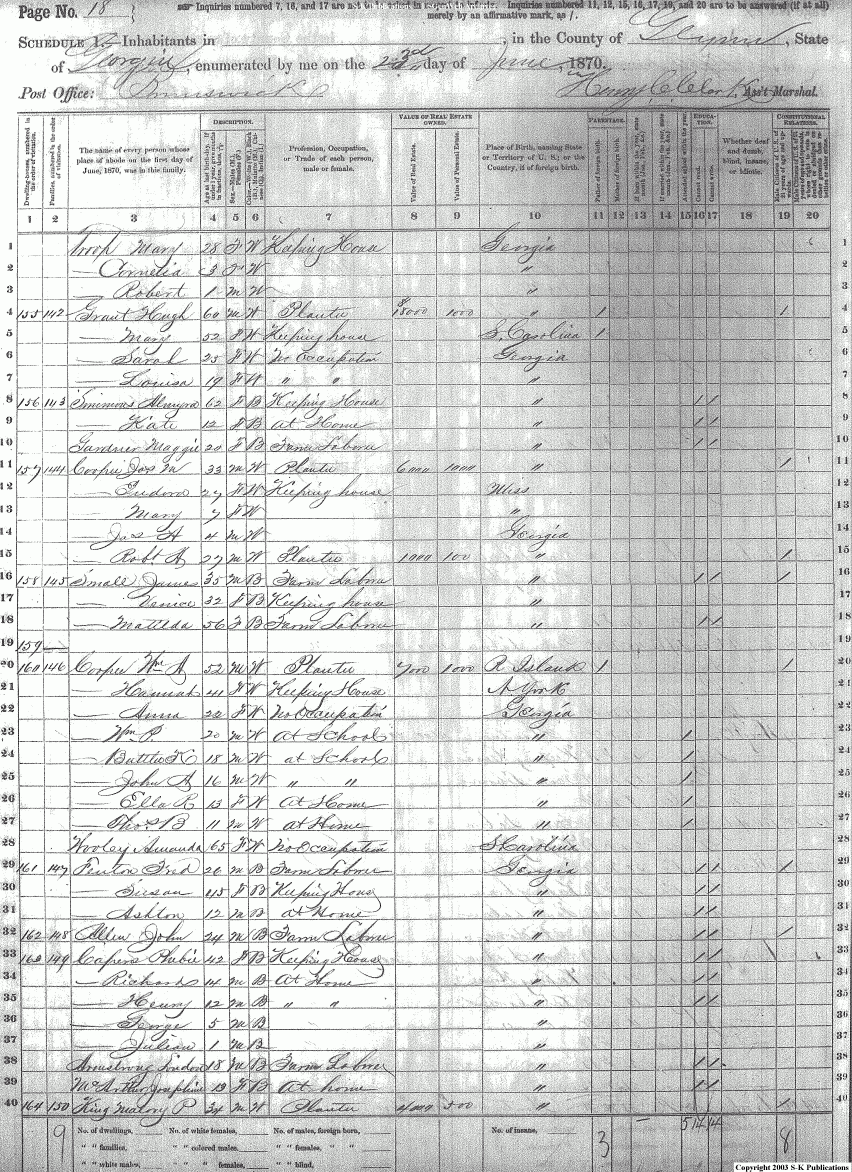 Page No. 18
Inquiries numbered 7, 16, and 17 are not to be asked in respect to infants. Inquiries numbered 11, 12, 15, 16, 17, 19, and 20 are to be answered (if at all)
merely by an affirmative mark, as /.
SCHEDULE 1.—Inhabitants in , in the County of Glynn, State
of Georgia, enumerated by me on the 23d day of June, 1870.
Post Office: Brunswick Henry C. Clark, Ass't Marshal.
DESCRIPTION. VALUE OF REAL ESTATE OWNED. PARENTAGE. EDUCATION. CONSTITUTIONAL RELATIONS.
The name of every person whose place of abode on the first day of June, 1870, was in this family.
Profession, Occupation, or Trade of each person, male or female.
Value of Real Estate. Value of Personal Estate.
Place of Birth, naming State or Territory of U. S.; or the Country, if of foreign birth.
Father of foreign birth. Mother of foreign birth.
Cannot read. Cannot write.
Whether deaf and dumb, blind, insane, or idiotic.
1 2 3 4 5 6 7 8 9 10 11 12 13 14 15 16 17 18 19 20
1 Troop Mary 28 F W Keeping House Georgia 1
2 — Cornelia 3 F W " 2
3 — Robert 1 M W " 3
4 155 142 Grant Hugh 60 M W Planter $ 15000 1000 " 1 1 4
5 — Mary 52 F W Keeping house S. Carolina 1 5
6 — Sarah 25 F W No Occupation Georgia 6
7 — Louisa 19 F W " " " 7
8 156 143 Simmons Almyra 62 F B Keeping House " 1 1 8
9 — Kate 12 F B at Home " 1 1 9
10 Gardner Maggie 20 F B Farm Laborer " 1 1 10
11 157 144 Cooper Jas M 33 M W Planter 6000 1000 " 1 11
12 — Eudora 27 F W Keeping house Miss 12
13 — Mary 7 F W " 13
14 — Jas H 4 M W Georgia 14
15 — Robt H 27 M W Planter 1000 100 " 1 15
16 158 145 Small James 35 M B Farm Laborer " 1 1 1 16
17 — Venice 32 F B Keeping house " 17
18 — Matilda 56 F B Farm Laborer " 1 1 18
19 159 — 19
20 160 146 Cooper Wm A 52 M W Planter 7000 1000 R Island 1 1 20
21 — Hannah 41 F W Keeping House N York 21
22 — Anna 22 F W No Occupation Georgia 22
23 — Wm P 20 M W at School " 1 23
24 — K 18 M W at School " 1 24
25 — John A 16 M W " " " 1 25
26 — Ella R 13 F W At Home " 1 26
27 — Thos B 11 M W at Home " 1 27
28 Wooley Amanda 65 F W No Occupation S Carolina 28
29 161 147 Fenton Fred 20 M B Farm Laborer Georgia 1 1 1 29
30 — Susan 45 F B Keeping House " 1 1 30
31 — Ashton 12 M B at Home " 1 1 31
32 162 148 Allen John 24 M B Farm Laborer " 1 1 1 32
33 163 149 Capers Phebie 42 F B Keeping House " 1 1 33
34 — Richard 14 M B At Home " 1 1 34
35 — Henry 12 M B " " " 1 1 35
36 — George 5 M B " 36
37 — Julian 1 M B " 37
38 Armstrong London 18 M B Farm Laborer " 1 1 38
39 McArthur Josephine 19 F B At home " 1 1 39
40 164 150 King Malory P 34 M W Planter 4000 500 " 1 40
9 No. of dwellings, No. of white females, No. of males, foreign born, No. of insane, 3 5 14 14 8
" " families, " " colored males, " " females, " "
" " white males, " " " females, " " blind,
Copyright 2003 S-K Publications